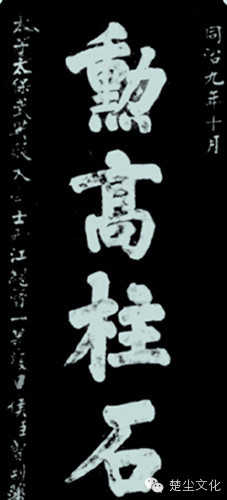 同治九年十月
勳高柱石
太子太保武英殿大學士兩江總督一等毅勇侯曾國藩
楚尘文化